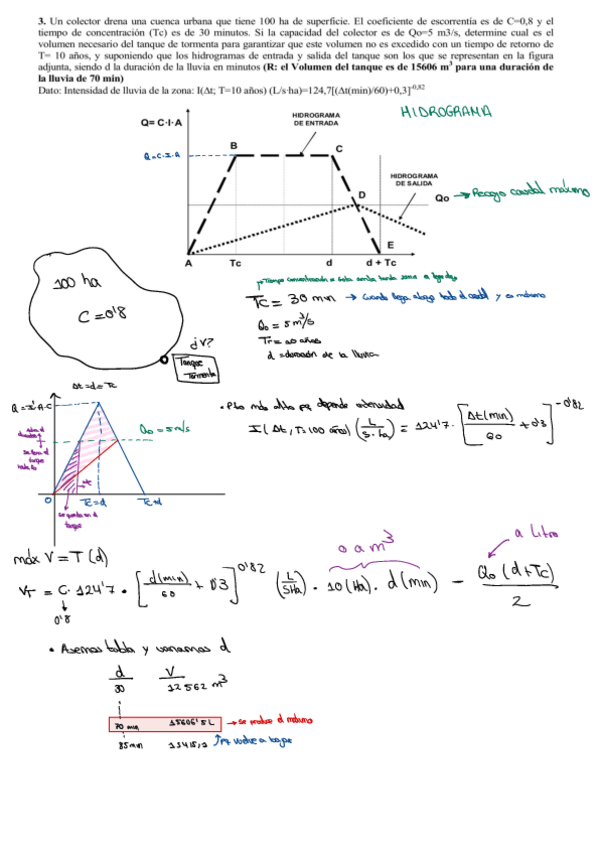 3. Un colector drena una cuenca urbana que tiene 100 ha de superficie. El coeficiente de escorrentía es de C=0,8 y el
tiempo de concentración (Tc) es de 30 minutos. Si la capacidad del colector es de Qo=5 m3/s, determine cual es el
volumen necesario del tanque de tormenta para garantizar que este volumen no es excedido con un tiempo de retorno de
T= 10 años, y suponiendo que los hidrogramas de entrada y salida del tanque son los que se representan en la figura
adjunta, siendo d la duración de la lluvia en minutos (R: el Volumen del tanque es de 15606 m3 para una duración de
la lluvia de 70 min)
Dato: Intensidad de lluvia de la zona: I(Δt; T=10 años) (L/s·ha)=124,7[(Δt(min)/60)+0,3]-0,82
HIDROGRAMA
Q= C·I·A
HIDROGRAMA
DE ENTRADA
Q=C·I·A
B
C
HIDROGRAMA
DE SALIDA
D
Qo → Recogo caudal máximo
E
A
Tc
d
d + Tc
100 ha
C=0'8
Tc = 30 min → Cuando llega abajo todo el caudal y es máximo
Qo = 5 m3/s
Tr = 10 años
d = duración de la lluvia
¿V?
Tanque
Tormenta
Δt=d=Tc
Q=I·A·C
Qo=5m/s
0
Tc=d
Tc+d
• Pto más alto pq depende intensidad
I(Δt, T=100 años) (L/s·ha) = 124'7· [Δt(min)/60 + 0'3]-0'82
a Litro
a m3
máx V=T(d)
VT = C·124'7 · [d(min)/60 + 0'3]0'82 (L/SHa) · 10(Ha)· d(min) − Qo(d+Tc)/2
0'8
• Asemos tabla y variamos d
d V
30 12562 m3
70 min 15606'5L → se produce el máximo
85min 15415,2 ↑Pq vuelve a bajar